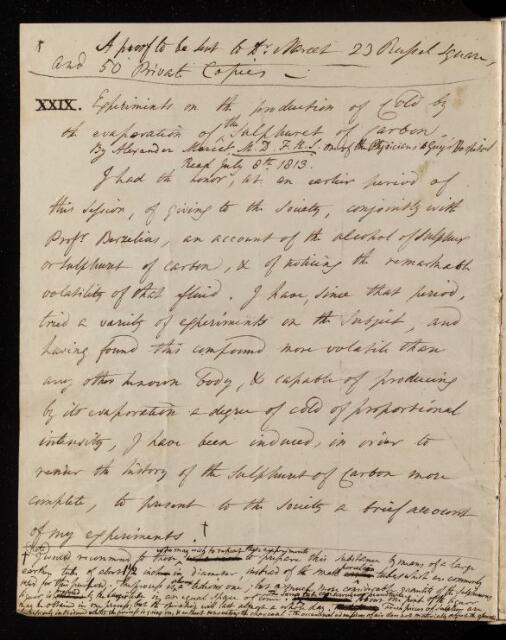 † A proof to be sent to Dr. Marcet 23 Russel Square,
and 50 Private Copies —
XXIX. Experiments on the production of Cold by
th evaporation of the Sulphuret of Carbon.
By Alexander Marcet M.D. F.R.S. one of the Physicians to Guy's Hospital
Read July 8th. 1813.
I had th honor, at an earlier period of
this Session, of giving to the Society, conjointly with
Profr. Berzelius, an account of the alcohol of sulphur
or sulphuret of carbon, & of noticing th remarkable
volatility of that fluid. I have, since that period,
tried a variety of experiments on th subject, and
having found this compound more volatile than
any other known body, & capable of producing
by its evaporation a degree of cold of proportional
intensity, I have been induced, in order to
render the history of the Sulphuret of Carbon more
complete, to present to the Society a brief account
of my experiments. †
(Note) who may wish to repeat these experiments
† I would recommend to those to prepare this substance by means of a large
earthen tube, of about 1½ inches in diameter, instead of the small tubes which are commonly
used for this purpose. The process is thus
liquor is in an equal space of time. one pint of the
may be obtained in one process; but the operation will last perhaps a whole day.